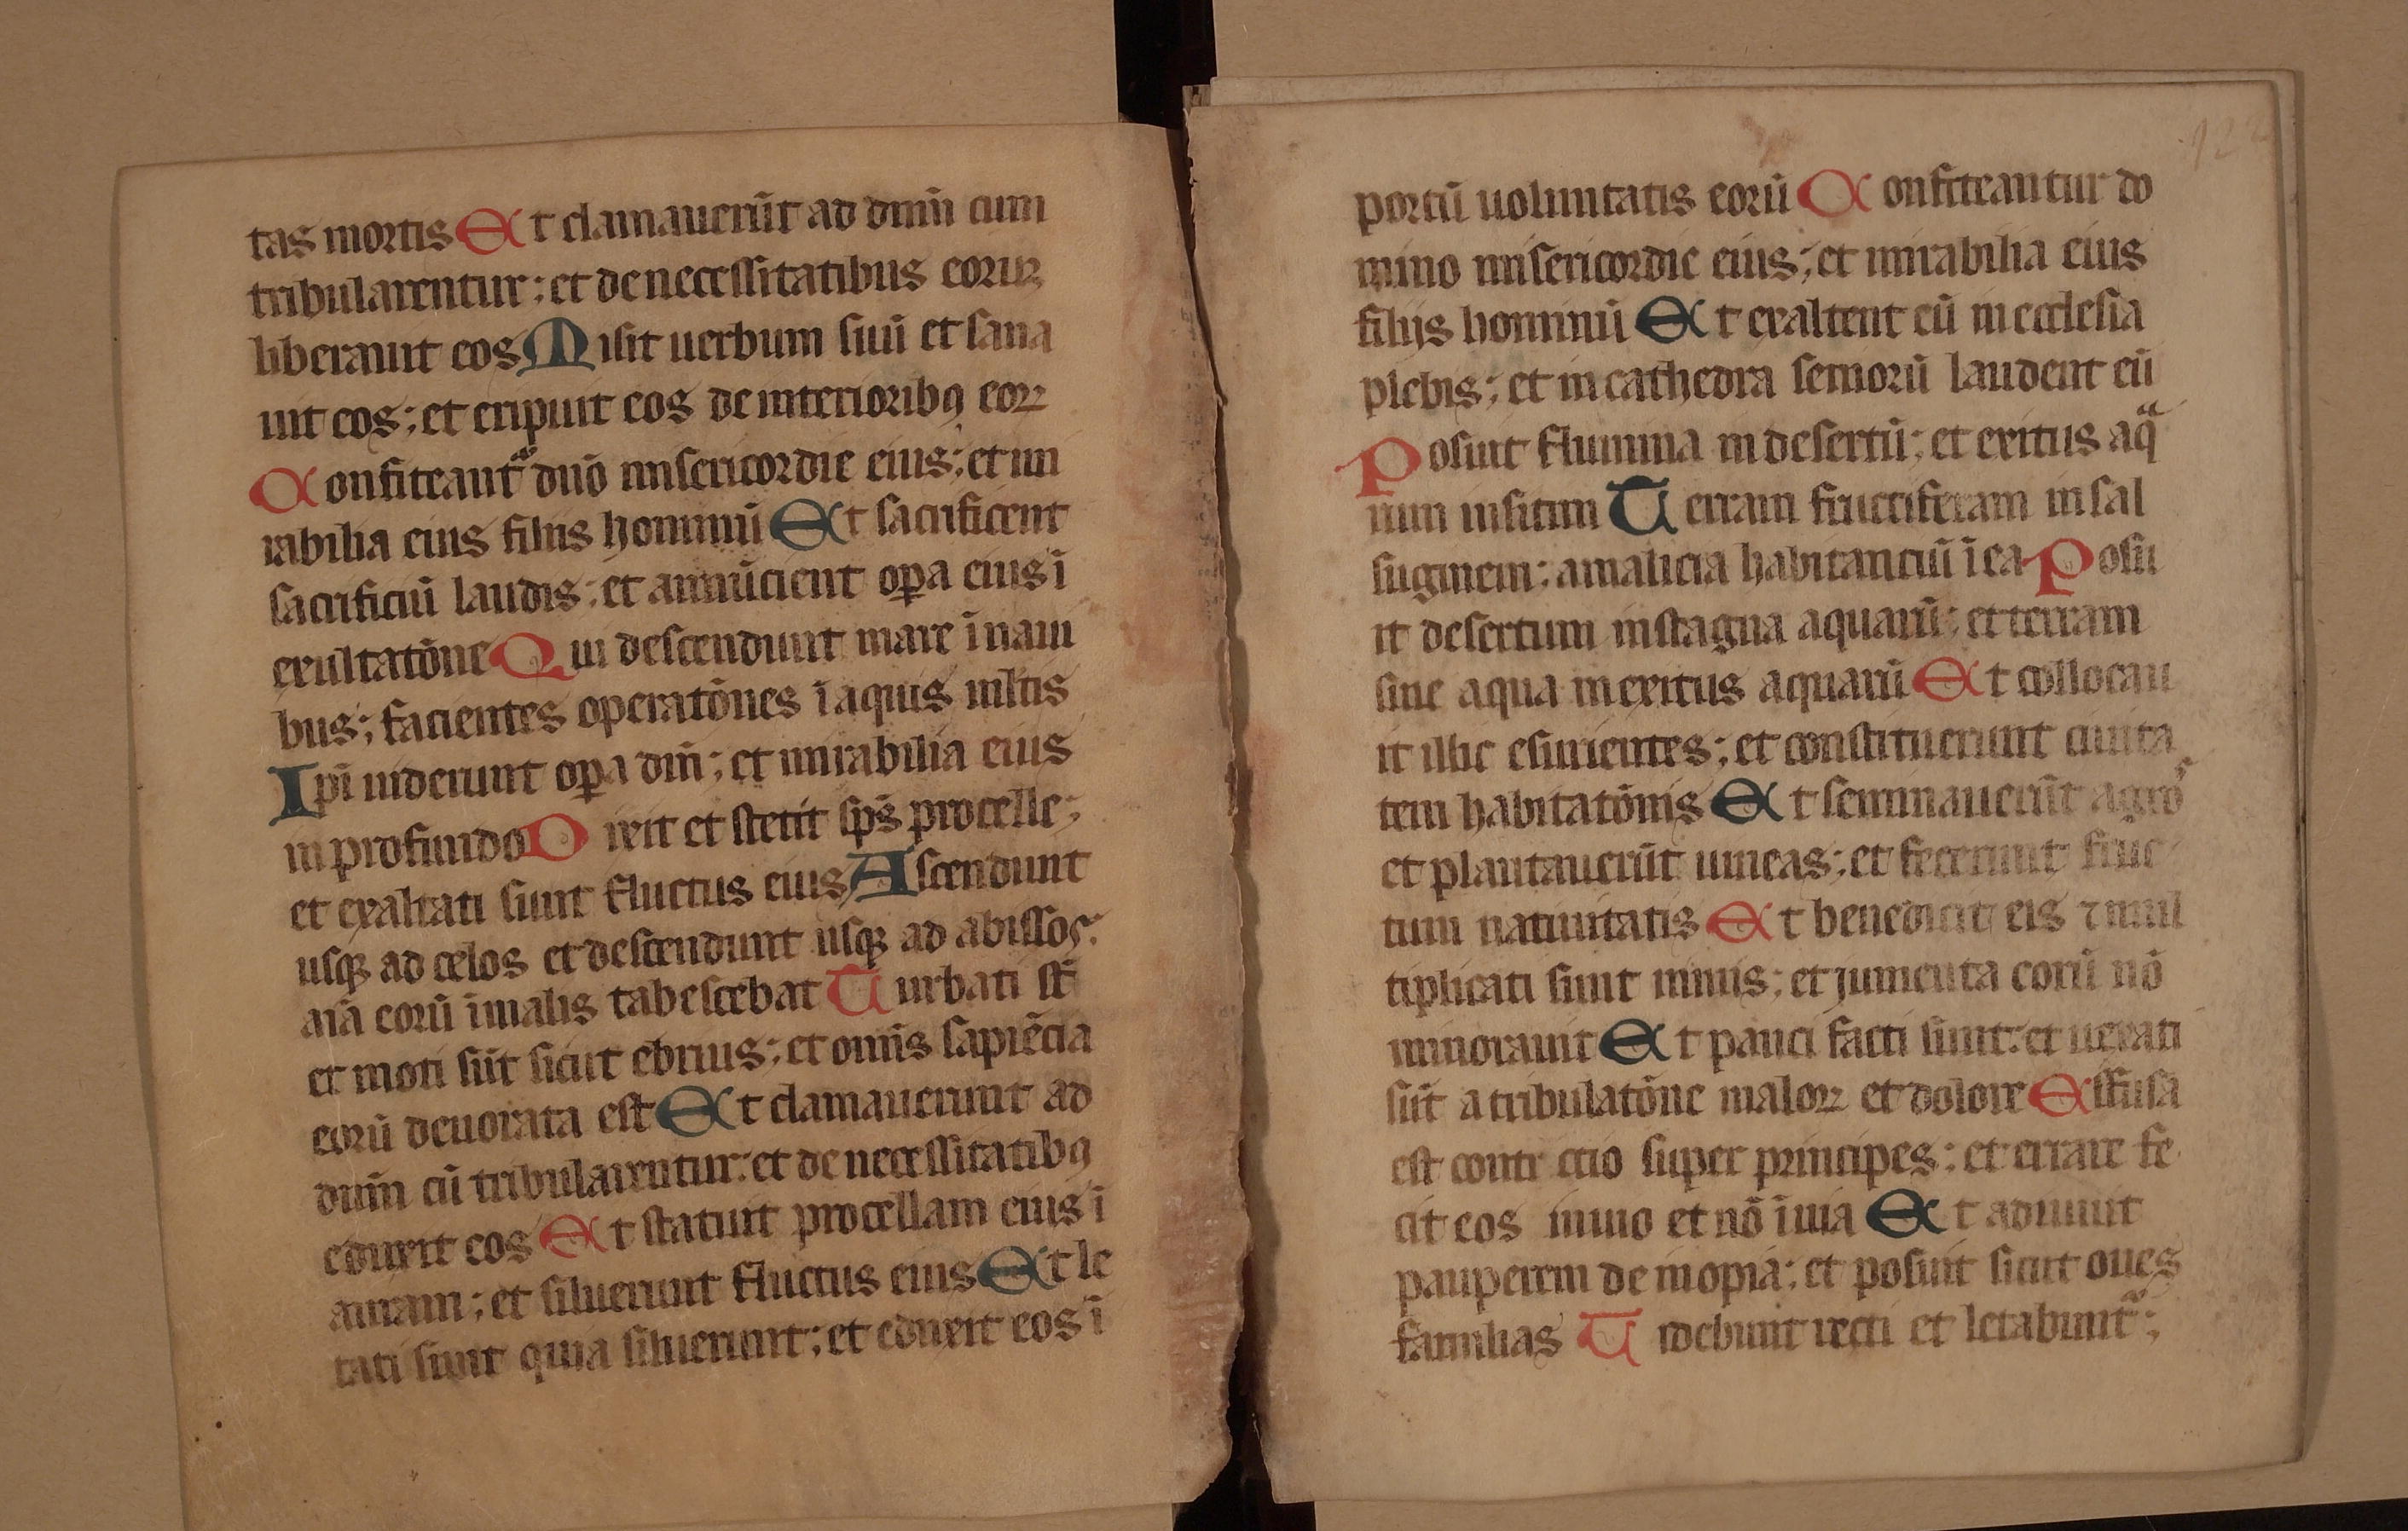 tas mortis Et clamauerūt ad dnm̄ cum
tribularentur; et de necessitatibus eoruꝝ
liberauit eos Misit uerbum suū et sana
uit eos; et eripuit eos de interioribꝯ eoꝝ
Confiteant᷑ dnō misericordie eius; et mi
rabilia eius filiis hominū Et sacrificent
sacrificiū laudis; et annūcient oꝑa eius ī
exultatōne Qui descendunt mare ī naui
bus; facientes operatōnes ī aquis mltis
Ipī uiderunt oꝑa dm̄; et mirabilia eius
in profundo Dixit et stetit sps̄ procelle;
et exaltati sunt fluctus eius Ascendunt
usqꝫ ad celos et descendunt usqꝫ ad abissos;
aīa eorū ī malis tabescebat Turbati st̄
et moti sūt sicut ebrius; et omīs sapiēcia
eorū deuorata est Et clamauerunt ad
dnm̄ cū tribularentur; et de necessitatibꝯ
eduxit eos Et statuit procellam eius ī
auram; et siluerunt fluctus eius Et le
tati sunt quia siluerunt; et eduxit eos ī
portū uoluntatis eorū Confiteantur do
mino misericordie eius; et mirabilia eius
filijs hominū Et exaltent eū in ecclesia
plebis; et in cathedra seniorū laudent eū
Posuit flumina in desertū; et exitus aqͣ
rum in sitim Terram fructiferam in sal
suginem; a malicia habitanciū ī ea Posu
it desertum in stagna aquarū; et terram
sine aqua in exitus aquarū Et collocau
it illic esurientes; et constituerunt ciuita
tem habitatōnis Et seminauerūt agros
et plantauerūt uineas; et fecerunt fruc
tum natiuitatis Et benedicit eis ⁊ mul
tiplicati sunt nimis; et jumenta eorū nō
minorauit Et pauci facti sunt; et uexati
sūt a tribulatōne maloꝝ et dolore Effusa
est contēcio super principes; et errare fe
cit eos inuio et nō ī uia Et adiuuit
pauperem de inopia; et posuit sicut oues
familias Uidebunt recti et letabunt᷑;